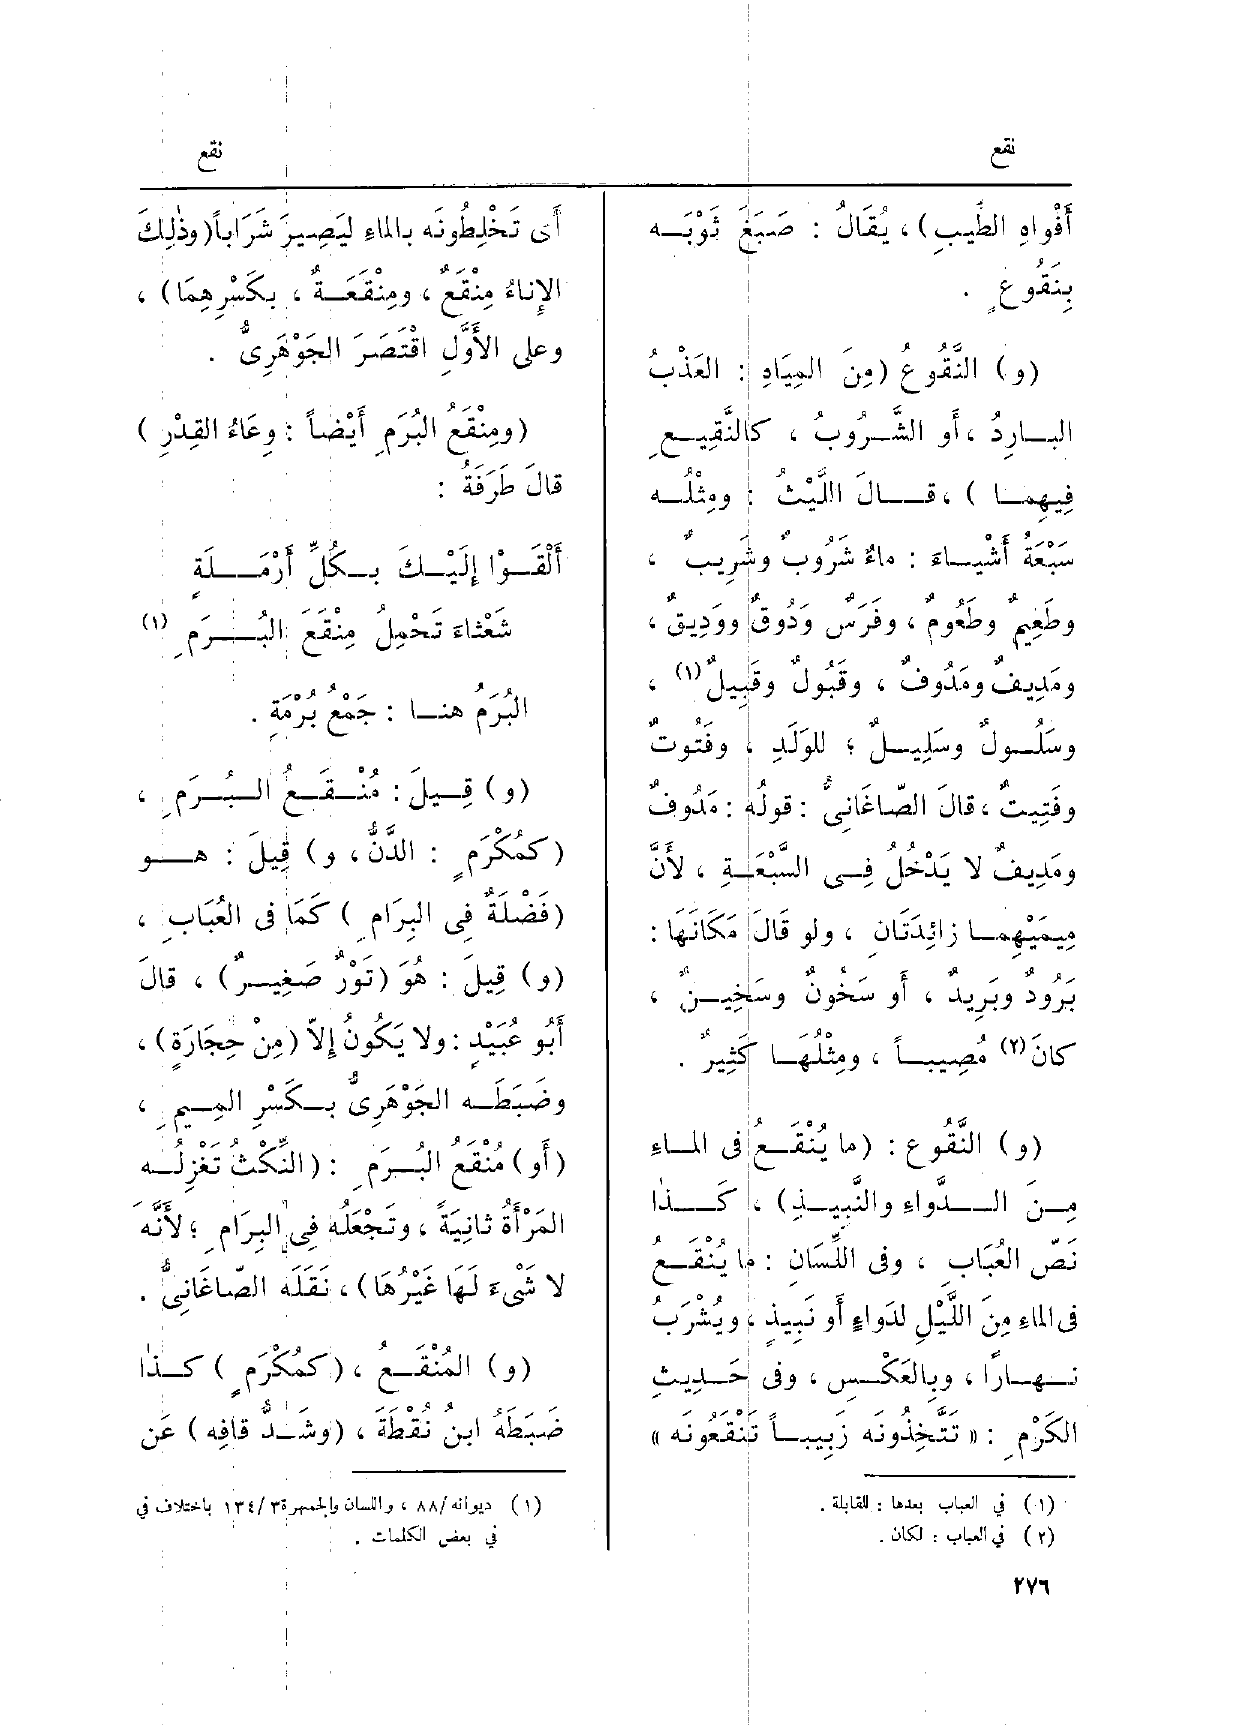 نقع
نقع
أَفْواهِ الطِّيبِ) ، يُقَالُ : صَبَغَ ثَوْبَـه
بِنَقُوعٍ .
(و) النَّقُوعُ (مِنَ المِيَاهِ : العَذْبُ
البـاردُ ، أَو الشَّـرُوبُ ، كالنَّقِيـعِ
فِيهِمـا ) ، قــالَ اللَّيْثُ : ومِثْلُـه
سَبْعَةُ أَشْيـاءَ : ماءٌ شَرُوبٌ وشَرِيبٌ ،
وطَعِيمٌ وطَعُومٌ ، وفَرَسٌ وَدُوقٌ ووَدِيقٌ ،
ومَدِيفٌ ومَدُوفٌ ، وقَبُولٌ وقَبِيلٌ(١) ،
وسَلُـولٌ وسَلِيـلٌ ؛ للوَلَدِ ، وفَتُوتٌ
وفَتِيتٌ ، قالَ الصّاغَانِيُّ : قولُه : مَدُوفٌ
ومَدِيفٌ لا يَدْخُلُ فِـى السَّبْعَـةِ ، لأَنَّ
مِيمَيْهِمـا زائِدَتَانِ ، ولو قَالَ مَكَانَهَا :
بَرُودٌ وبَرِيدٌ ، أَو سَخُونٌ وسَخِيـنٌ ،
كانَ(٢) مُصِيبـاً ، ومِثْلُهَـا كَثِيرٌ .
(و) النَّقُوع : (ما يُنْقَـعُ فى المـاء
مِـنَ الــدَّواءِ والنَّبِيـذِ) ، كَــذا
نَصّ العُبَابِ ، وفى اللِّسَانِ : ما يُنْقَـعُ
فى الماءِ مِنَ اللَّيْلِ لدَواءٍ أَو نَبِيذٍ ، ويُشْرَبُ
نـهـارًا ، وبالعَكْـسِ ، وفى حَـدِيثِ
الكَرْمِ : « تَتَّخِذُونَه زَبِيبـاً تَنْقَعُونَه »
(١) فى العباب بعدها : للقابلة .
(٢) فى العباب : لكان .
أَى تَخْلِطُونَه بالماءِ ليَصِيرَ شَرَاباً (وذٰلِكَ
الإِناءُ مِنْقَعٌ ، ومِنْقَعَـةٌ ، بكَسْرِهِمَا ) ،
وعلى الأَوَّلِ اقْتَصَرَ الجَوْهَرِىُّ .
(ومِنْقَعُ البُرَمِ أَيْضـاً : وِعَاءُ القِدْرِ )
قالَ طَرَفَةُ :
أَلْقَـوْا إِلَيْـكَ بـكُلِّ أَرْمَـلَةٍ
شَعْثاءَ تَحْمِلُ مِنْقَعَ البُـرَمِ (١)
البُرَمُ هنـا : جَمْعُ بُرْمَةٍ .
(و) قِـيلَ : مُنْـقَـعُ الـبُـرَمِ ،
(كمُكْرَمٍ : الدَّنُّ ، و) قِيلَ : هـو
(فَضْلَةٌ فِى البِرَامِ ) كَمَا فى العُبَابِ ،
(و) قِيلَ : هُوَ (تَوْرٌ صَغِيـرٌ) ، قالَ
أَبُو عُبَيْدٍ : ولا يَكُونُ إِلاّ (مِنْ حِجَارَةٍ) ،
وضَبَطَـه الجَوْهَرِىُّ بـكَسْرِ المِـيمِ ،
(أَو) مُنْقَعُ البُـرَمِ : (النِّكْثُ تَغْزِلُـه
المَرْأَةُ ثانِيَةً ، وتَجْعَلُه فِى البِرَامِ ؛ لأَنَّه
لا شَىْءَ لَهَا غَيْرُهَا) ، نَقَلَه الصّاغَانِىُّ .
(و) المُنْقَـعُ ، (كمُكْرَمٍ ) كـذا
ضَبَطَهُ ابنُ نُقْطَةَ ، (وشَـدُّ قافِه ) عَن
(١) ديوانه/٨٨ ، واللسان والجمهرة ١٣٤/٣ باختلاف فى
فى بعض الكلمات .
٢٧٦